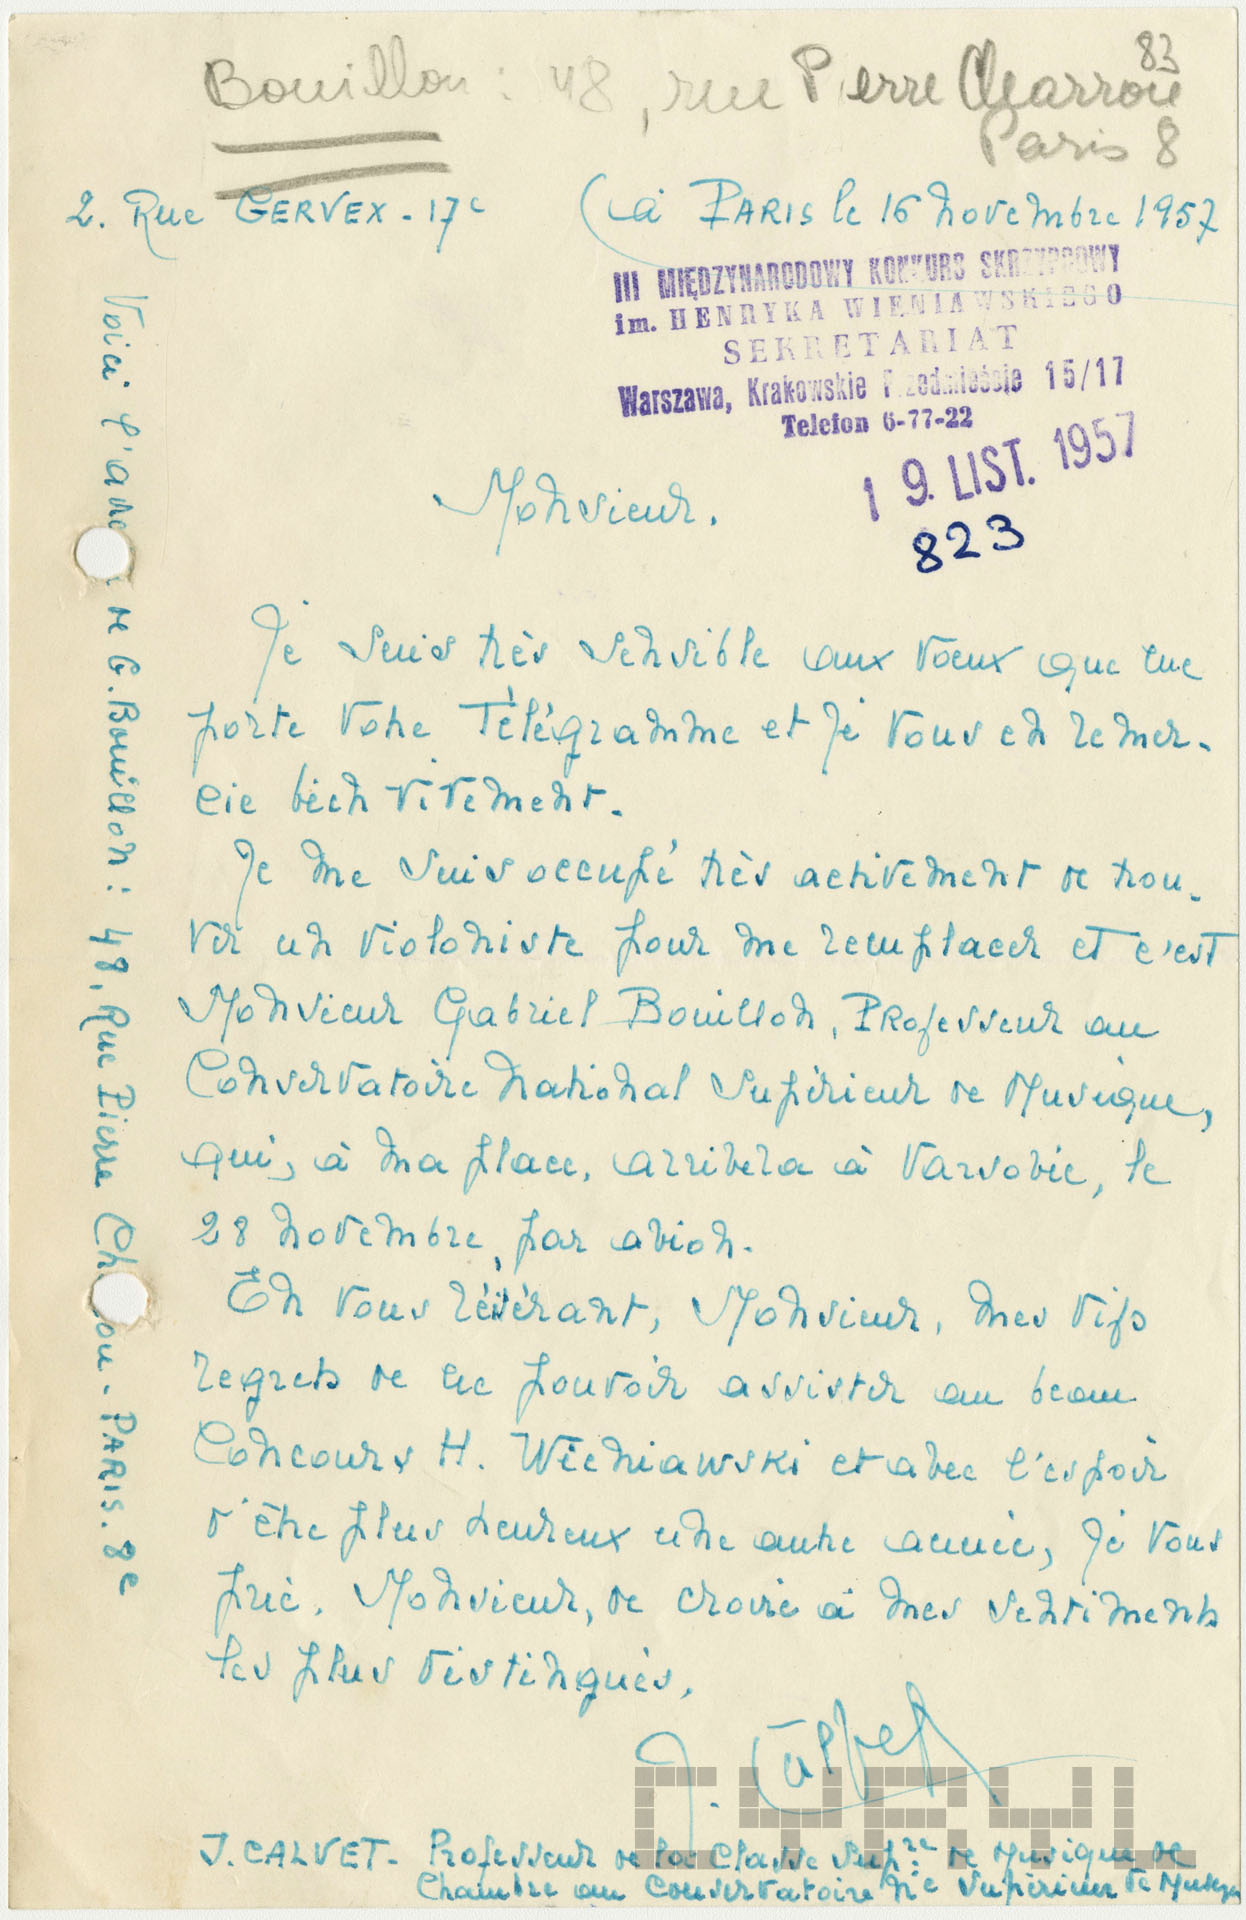 83
Bouillon : 48, rue Pierre Charron
Paris 8
2. Rue GERVEX - 17e
à PARIS le 16 novembre 1957
III MIĘDZYNARODOWY KONKURS SKRZYPCOWY
im. HENRYKA WIENIAWSKIEGO
SEKRETARIAT
Warszawa, Krakowskie Przedmieście 15/17
Telefon 6-77-22
19. LIST. 1957
823
Monsieur.
Je suis très sensible aux vœux que me
porte votre Télégramme et je vous en remer-
cie bien vivement.
Je me suis occupé très activement de trou-
ver un violoniste pour me remplacer et c'est
Monsieur Gabriel Bouillon, Professeur au
Conservatoire National Supérieur de Musique,
qui, à ma place, arrivera à Varsovie, le
28 novembre, par avion.
En vous réitérant, Monsieur, mes vifs
regrets de ne pouvoir assister au beau
Concours H. Wieniawski et avec l'espoir
d'être plus heureux une autre année, je vous
prie, Monsieur, de croire à mes sentiments
les plus distingués.
J. Calvet
J. CALVET - Professeur de la Classe Supre de Musique de
Chambre au Conservatoire Nle Supérieur de Musique
Voici l'adresse de G. Bouillon : 48, Rue Pierre Charron - PARIS. 8e